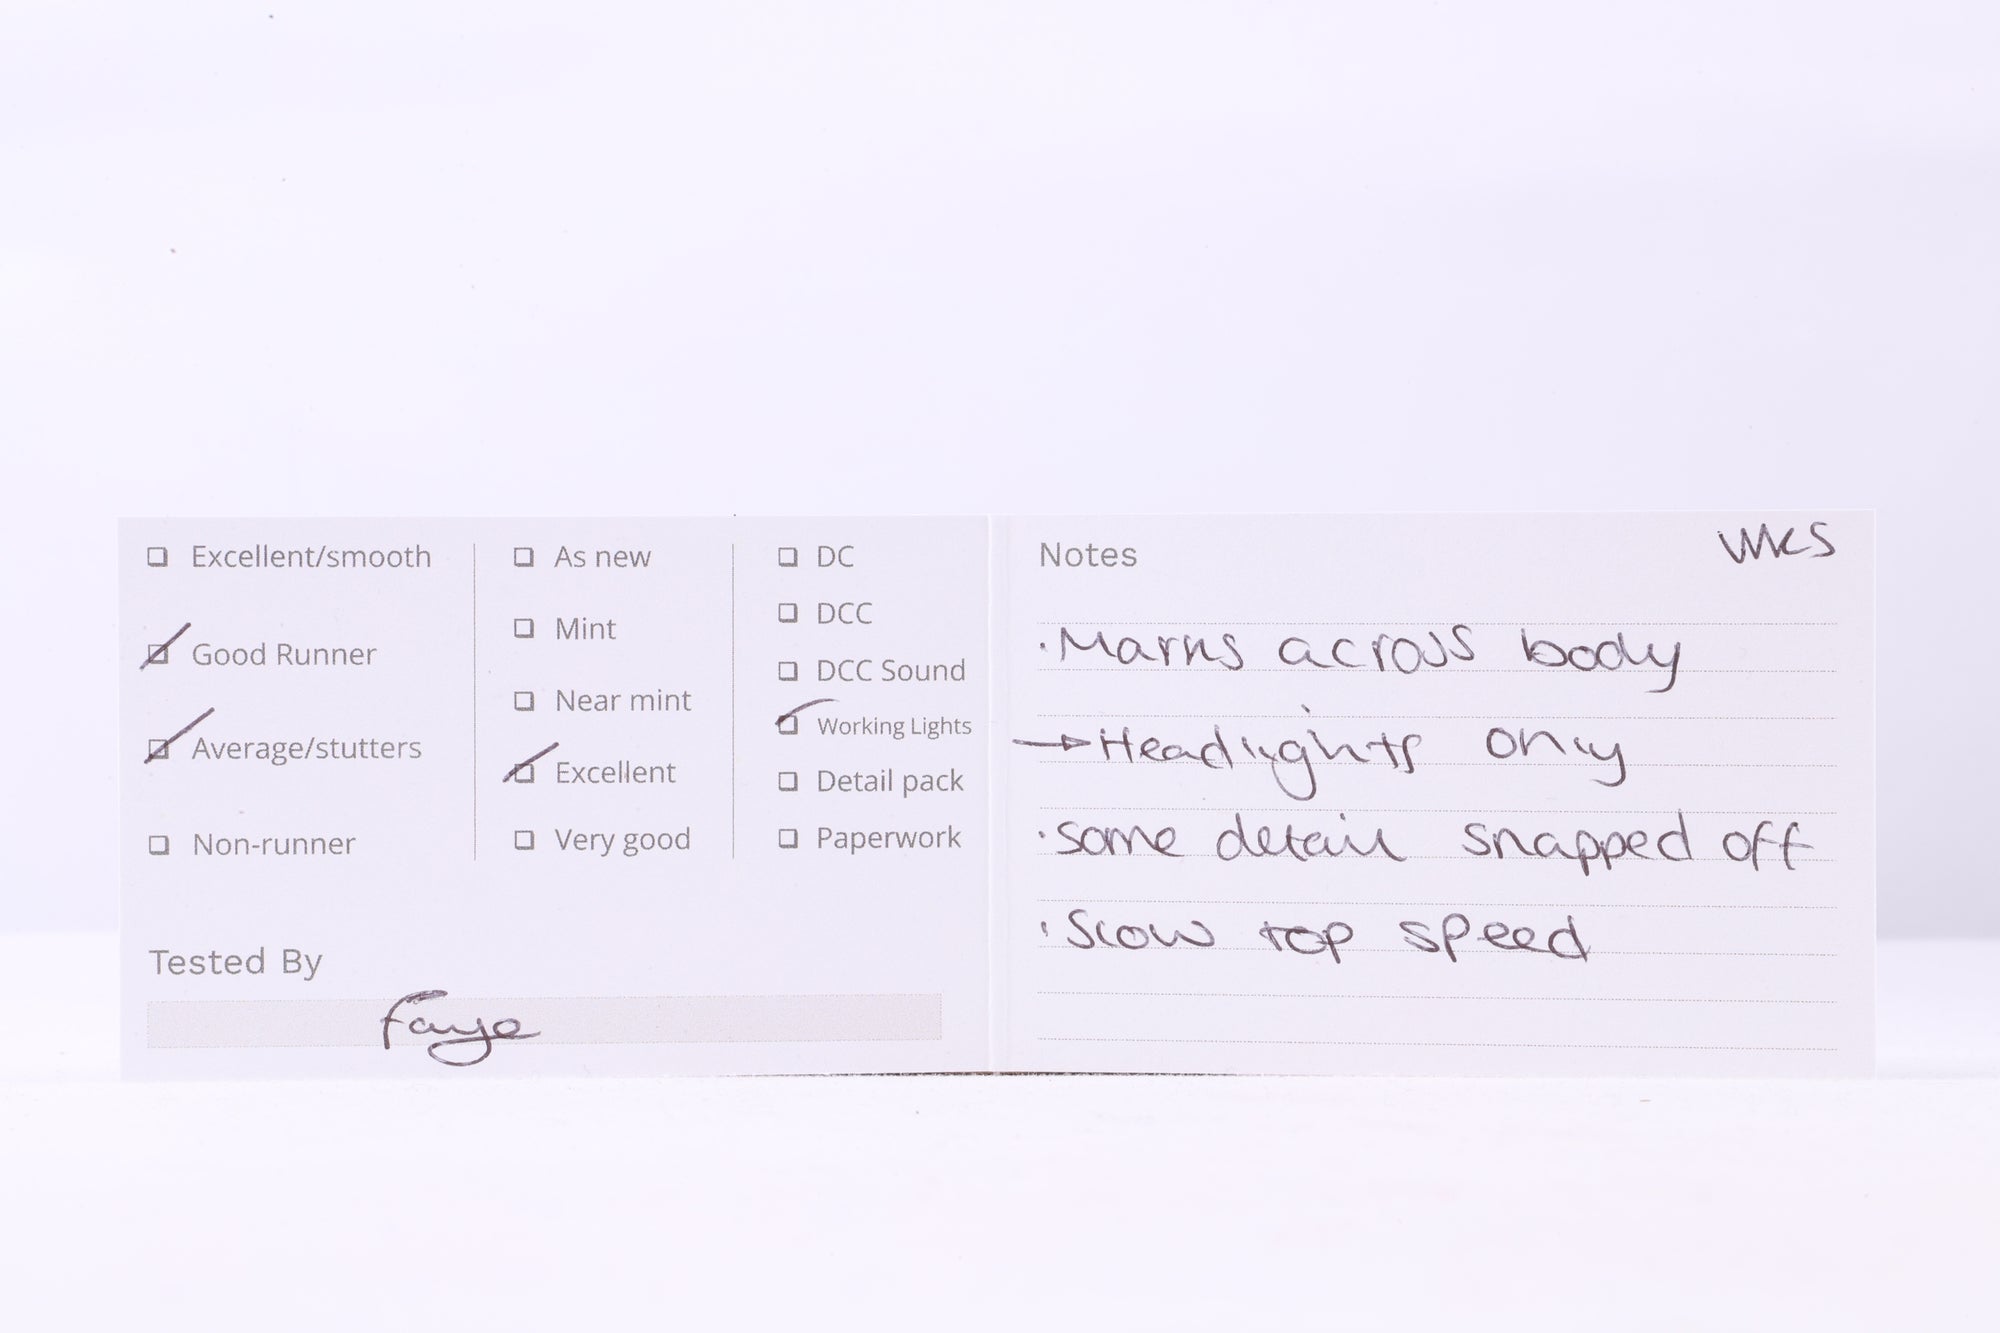 Excellent/smooth
Good Runner
Average/stutters
Non-runner
As new
Mint
Near mint
Excellent
Very good
DC
DCC
DCC Sound
Working Lights
Detail pack
Paperwork
Tested By
Faye
Notes
WKS
·Marks across body
→Headlights only
·some detail snapped off
·Slow top speed